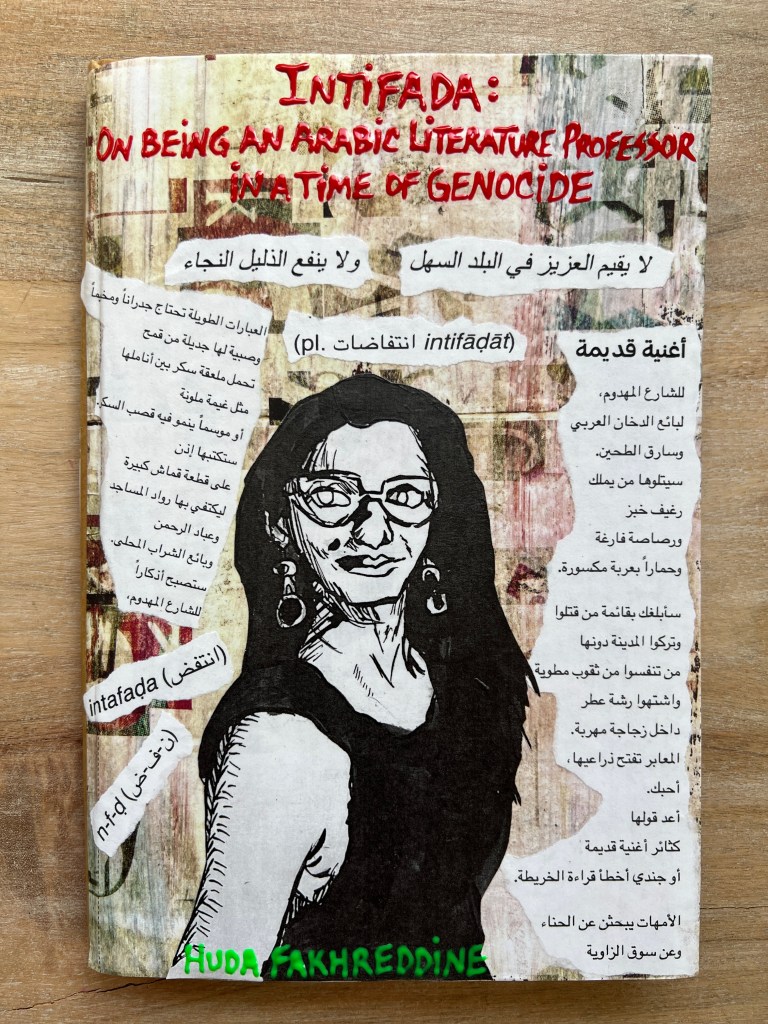 INTIFADA:
ON BEING AN ARABIC LITERATURE PROFESSOR
IN A TIME OF GENOCIDE
لا يقيم العزيز في البلد السهل
ولا ينفع الذليل النجاء
العبارات الطويلة تحتاج جدراناً ومخماً
وصبية لها جديلة من قمح
تحمل ملعقة سكر بين أناملها
مثل غيمة ملونة
أو موسماً ينمو فيه قصب السكر.
ستكتبها إذن
على قطعة قماش كبيرة
ليكتفي بها رواد المساجد
وعباد الرحمن
وبائع الشراب المحلى.
ستصبح أذكاراً
للشارع المهدوم،
(pl. انتفاضات intifāḍāt)
أغنية قديمة
للشارع المهدوم،
لبائع الدخان العربي
وسارق الطحين.
سيتلوها من يملك
رغيف خبز
ورصاصة فارغة
وحماراً بعربة مكسورة.
سأبلغك بقائمة من قتلوا
وتركوا المدينة دونها
من تنفسوا من ثقوب مطوية
واشتهوا رشة عطر
داخل زجاجة مهربة.
المعابر تفتح ذراعيها،
أحبك.
أعد قولها
كثائر أغنية قديمة
أو جندي أخطأ قراءة الخريطة.
الأمهات يبحثن عن الحناء
وعن سوق الزاوية
intafaḍa (انتفض)
n-f-ḍ (ن-ف-ض)
HUDA FAKHREDDINE